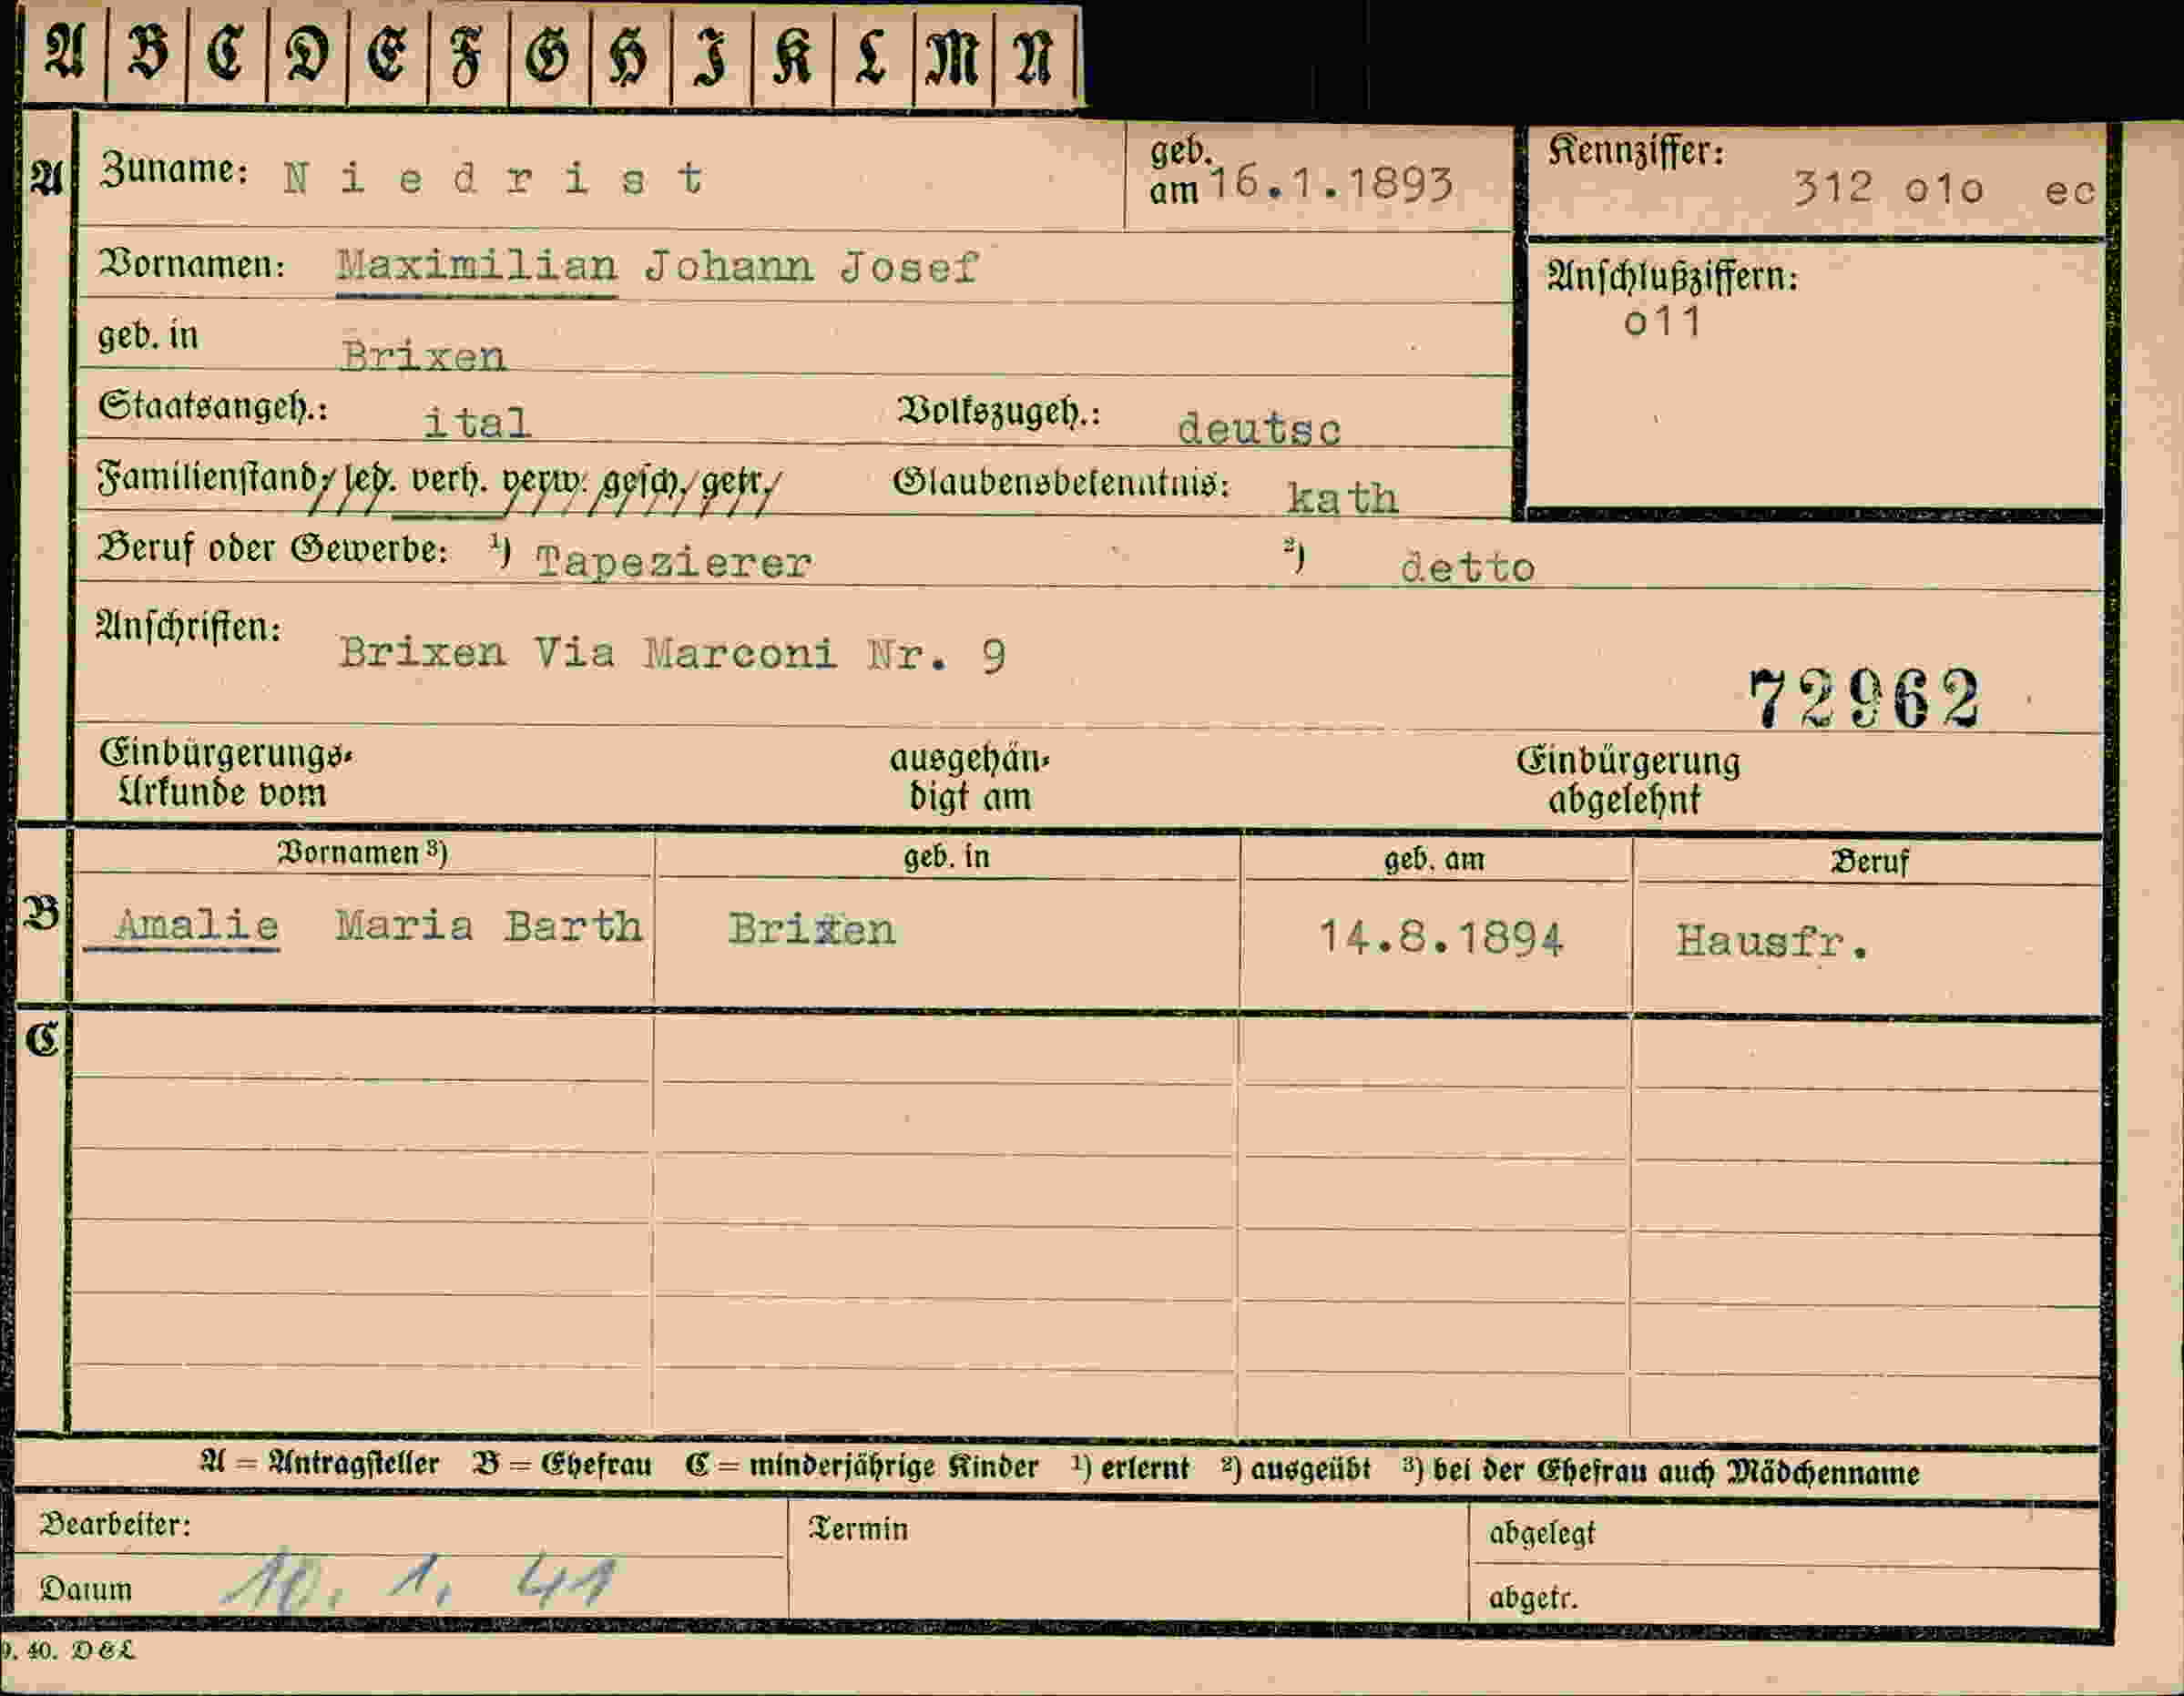 A B C D E F G H I K L M N
A Zuname: Niedrist geb. am 16.1.1893 Kennziffer: 312 o1o ec
Vornamen: Maximilian Johann Josef Anschlußziffern:
o11
geb. in Brixen
Staatsangeh.: ital Volkszugeh.: deutsc
Familienstand: led. verh. verw. gesch. getr. Glaubensbekenntnis: kath
Beruf oder Gewerbe: ¹) Tapezierer ²) detto
Anschriften: Brixen Via Marconi Nr. 9
72962
Einbürgerungs- ausgehän- Einbürgerung
Urkunde vom digt am abgelehnt
Vornamen ³) geb. in geb. am Beruf
B Amalie Maria Barth Brixen 14.8.1894 Hausfr.
C
A = Antragsteller B = Ehefrau C = minderjährige Kinder ¹) erlernt ²) ausgeübt ³) bei der Ehefrau auch Mädchenname
Bearbeiter: Termin abgelegt
Datum 10. 1. 41 abgetr.
9. 40. D&L